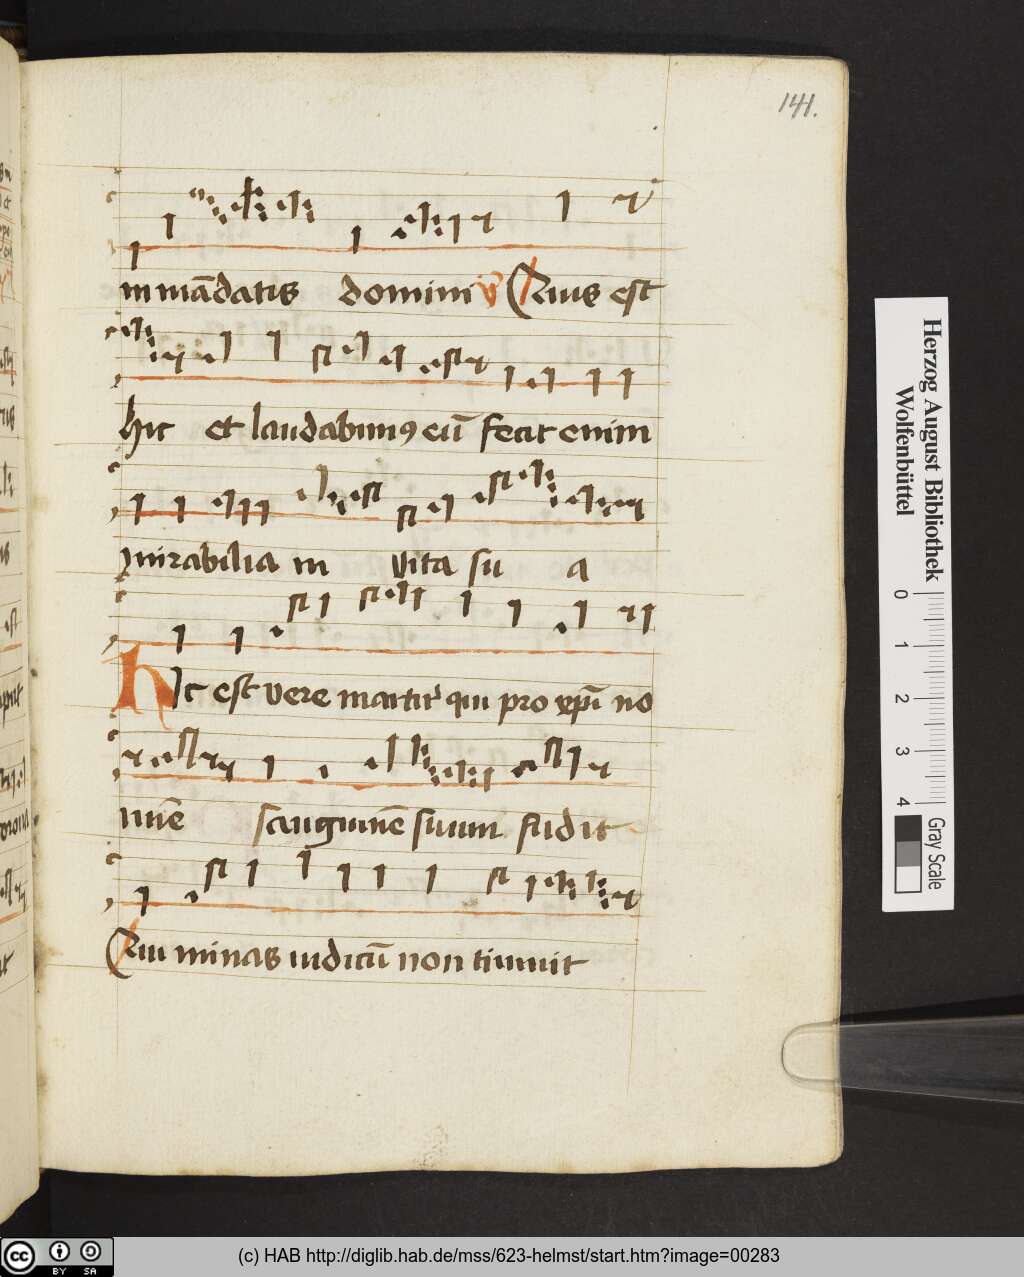 141.
in mādatis domini ꝟ Quis est
hic et laudabimꝯ eū fecit enim
mirabilia in vita su a
Hic est vere martir qui pro xpī no
mīe sanguinē suum fudit
Qui minas iudicū non timuit
Herzog August Bibliothek
Wolfenbüttel
0 1 2 3 4
Gray Scale
(c) HAB http://diglib.hab.de/mss/623-helmst/start.htm?image=00283
cc BY SA